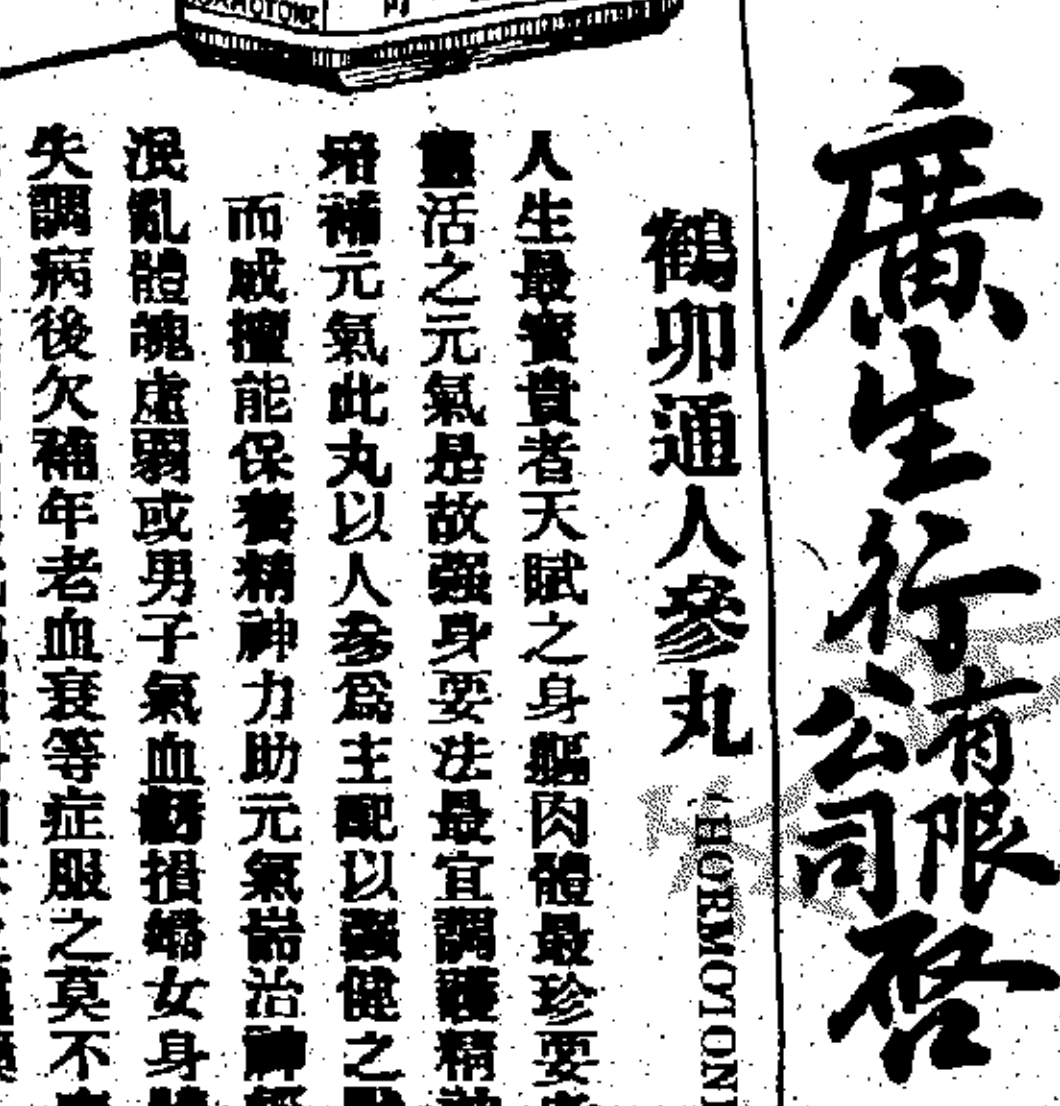 廣生行有限公司啓
鶴卵通人參丸
HORMOTON
人生最寳貴者天賦之身軀肉體最珍要
靈活之元氣是故强身要法最宜調護精神
培補元氣此丸以人參爲主配以强健之
而成擅能保養精神力助元氣耑治神經
混亂體魂虛弱或男子氣血虧損婦女身體
失調病後欠補年老血衰等症服之莫不